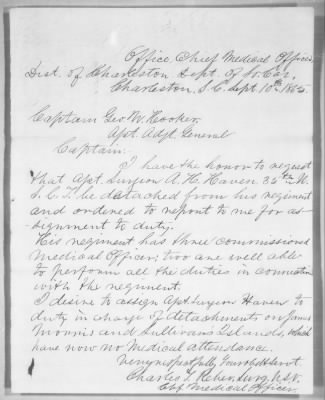 Office, Chief Medical Officer,
Dist. of Charleston Dept. of So. Car,
Charleston, S.C. Sept 10th 1865.
Captain Geo W. Hooker,
Asst. Adjt General
Captain:
I have the honor to request
that Asst. Surgeon A. H. Haven 35th U.
S. C. T. be detached from his regiment
and ordered to report to me for as-
-signment to duty.
His regiment has three commissioned
Medical Officers, two are well able
to perform all the duties in connection
with the regiment.
I desire to assign Asst. Surgeon Haven to
duty in charge of detachments on James
Morris and Sullivans Islands, which
have now no Medical attendance.
Very respectfully Your obdt Servt.
Charles T. Surg. U.S.V.
Chf. Medical Officer